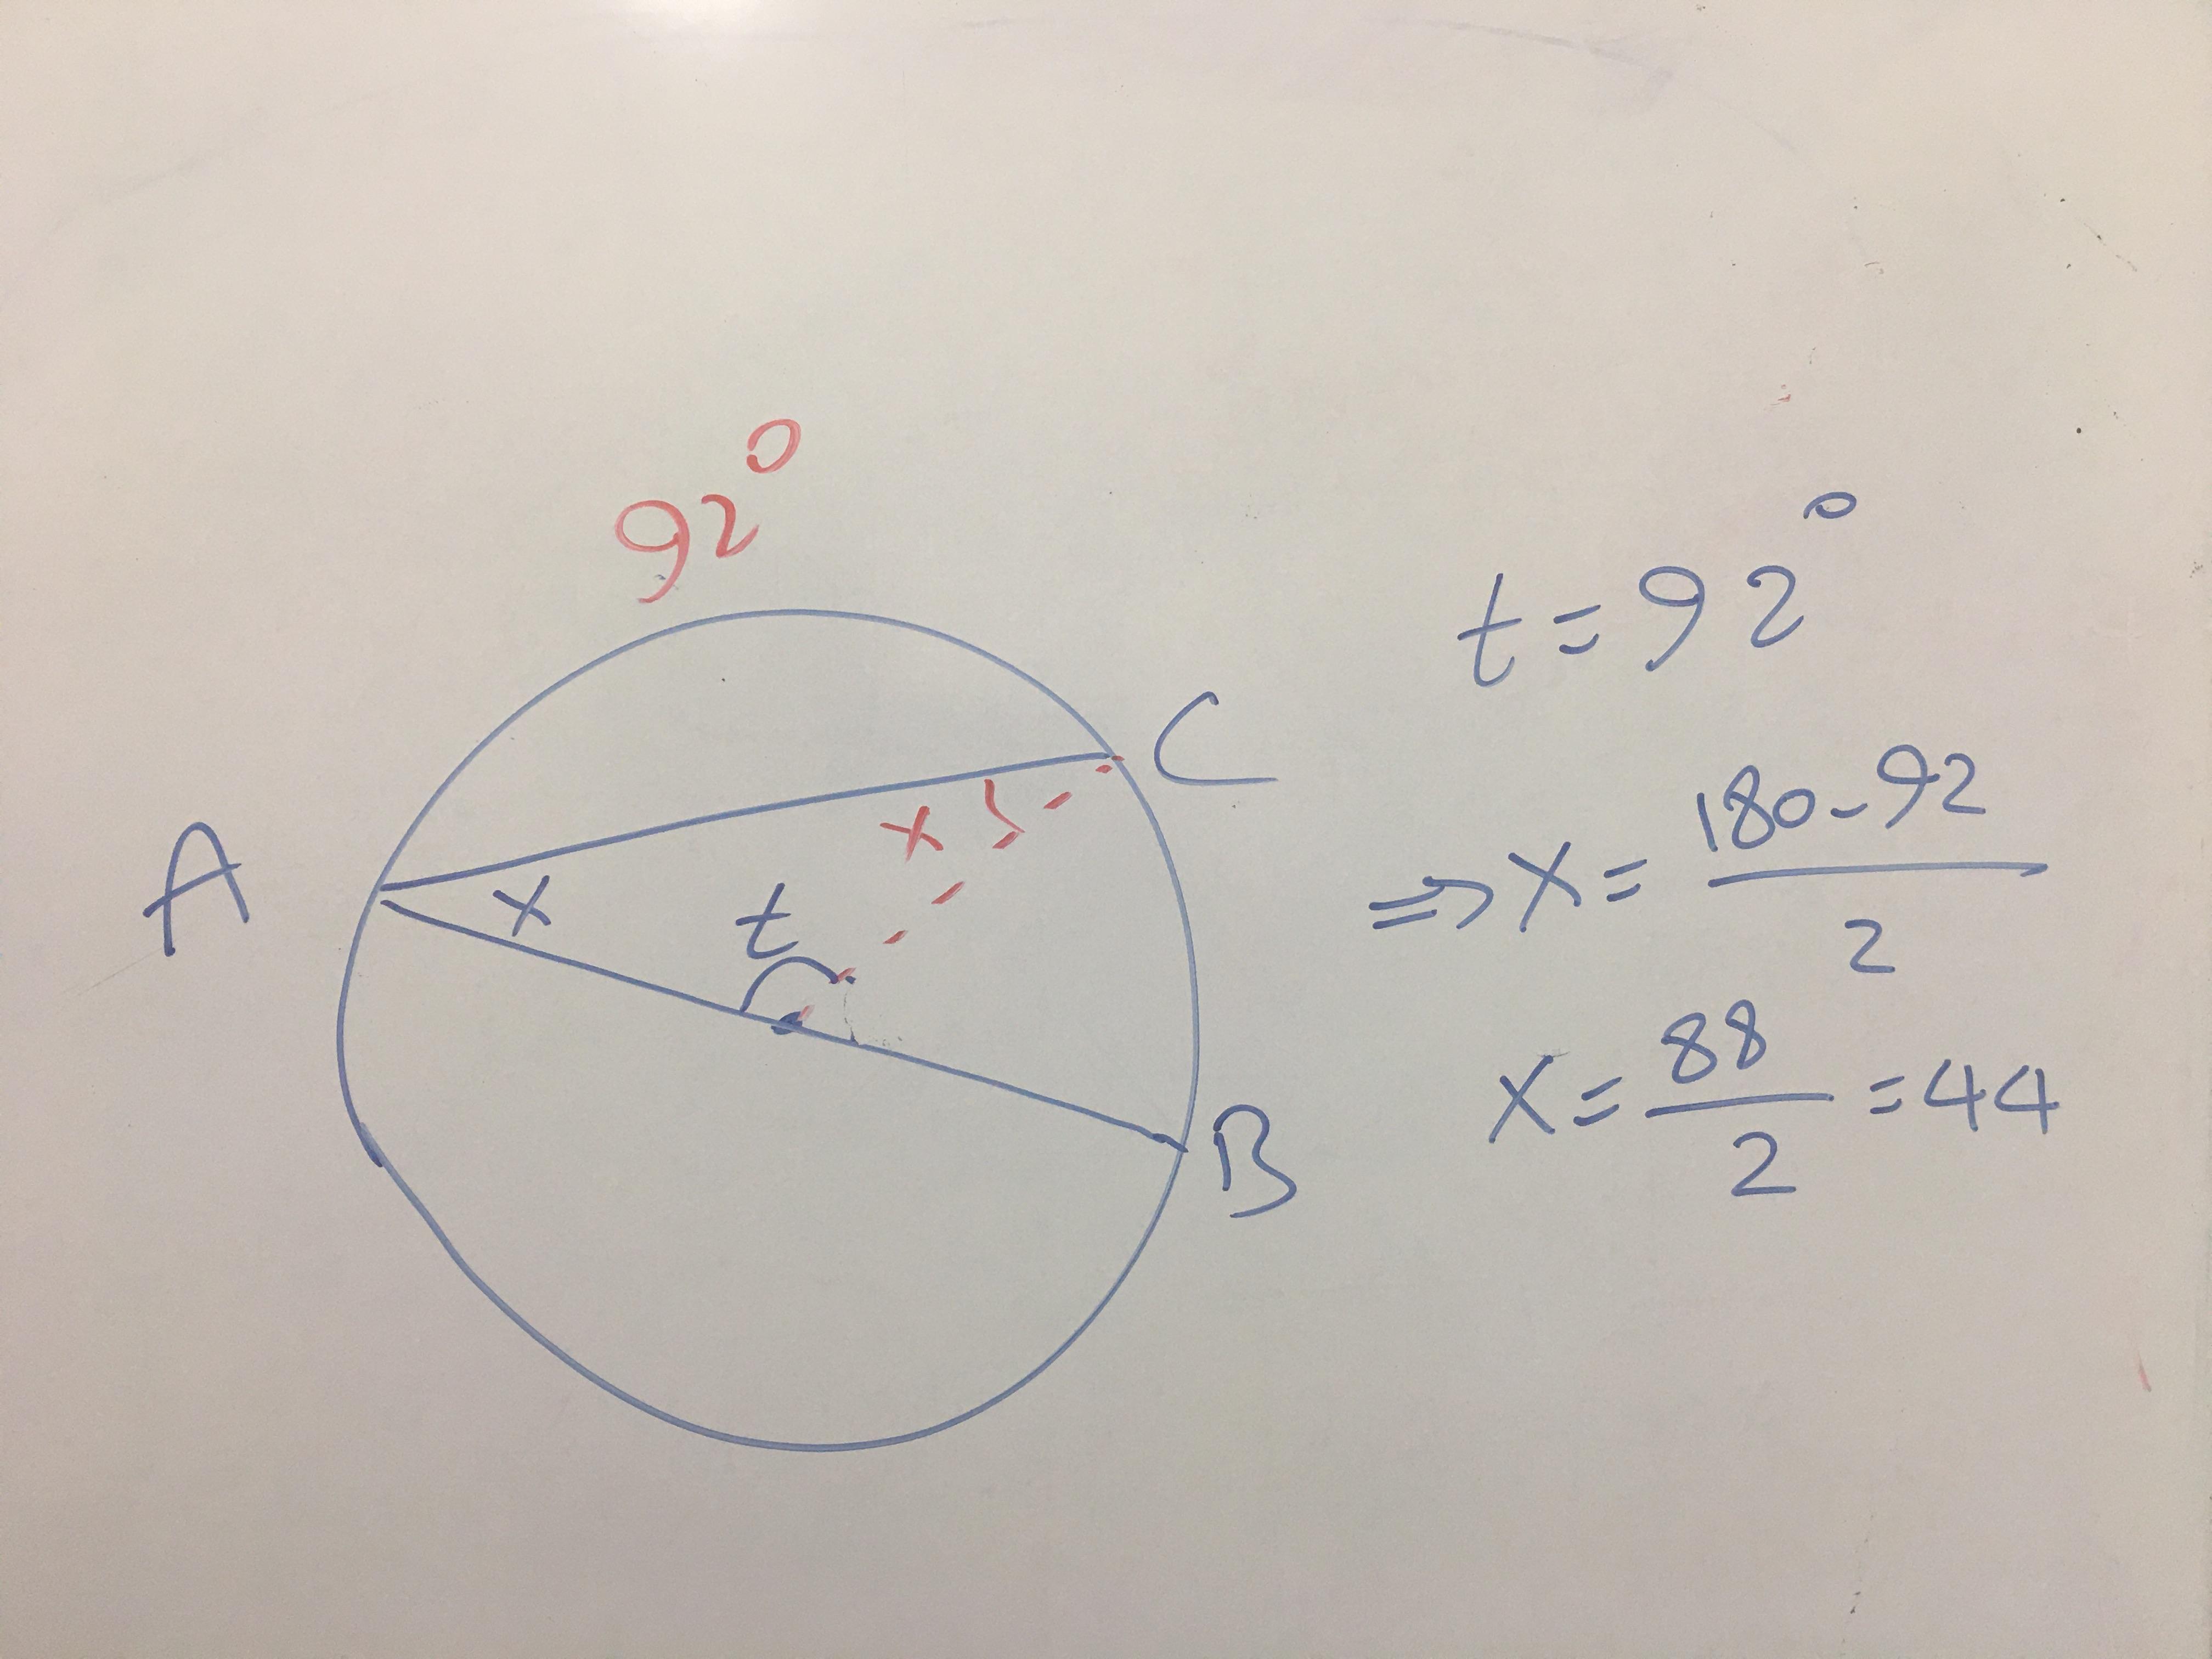 92°
C
A
x
x
t
B
t = 92°
⇒ x = 180 - 92 / 2
x = 88 / 2 = 44